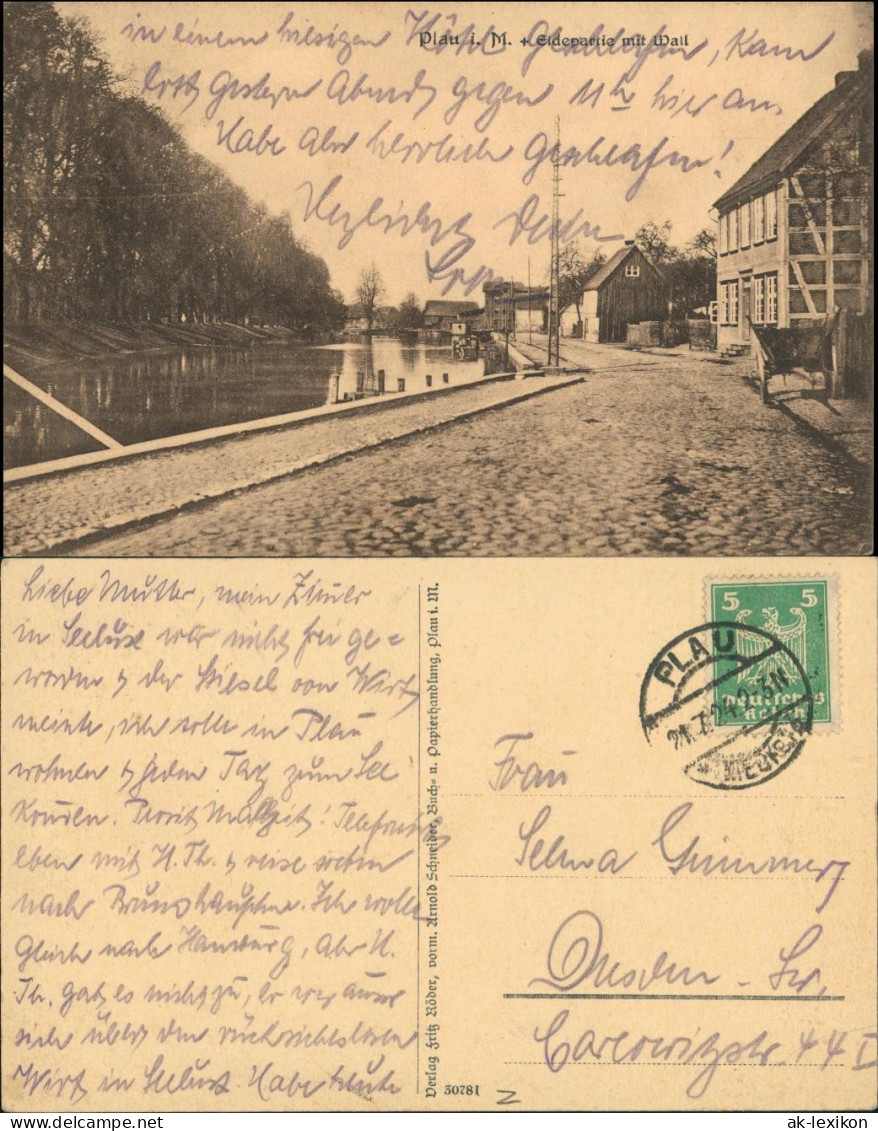 in einem hiesigen Hôtel geschlafen, kam
erst gestern Abend gegen 11 Uhr hier an
Habe aber herrlich geschlafen!
Herzlichst Dein
Plau i. M. + Eldepartie mit Wall
Liebe Mutter, mein Zimmer
in Seelust war nicht frei ge=
worden & der Stiesel von Wirt
meinte, ich solle in Plau
wohnen & jeden Tag zum See
kommen. Prosit Mahlzeit! Telefonierte
eben mit H. Th. & reise
nach Brunshaupten. Ich wollte
gleich nach Hamburg, aber H.
Th. gab es nicht zu, er war ausser
sich über den rücksichtslosen
Wirt in Seelust. Habe heute
Verlag Fritz Röder, vorm. Arnold Schneider, Buch= u. Papierhandlung, Plau i. M.
50781
5 5
Deutsches
Reich
PLAU
(MECKLB)
Frau
Selma
Dresden
Carlowitzstr. 44 I
ak-lexikon.com